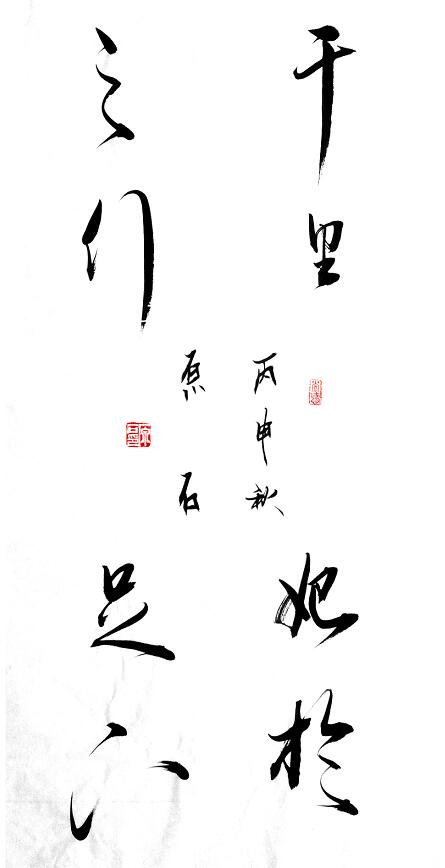 千里
之行
始於
足下
丙申秋
原石